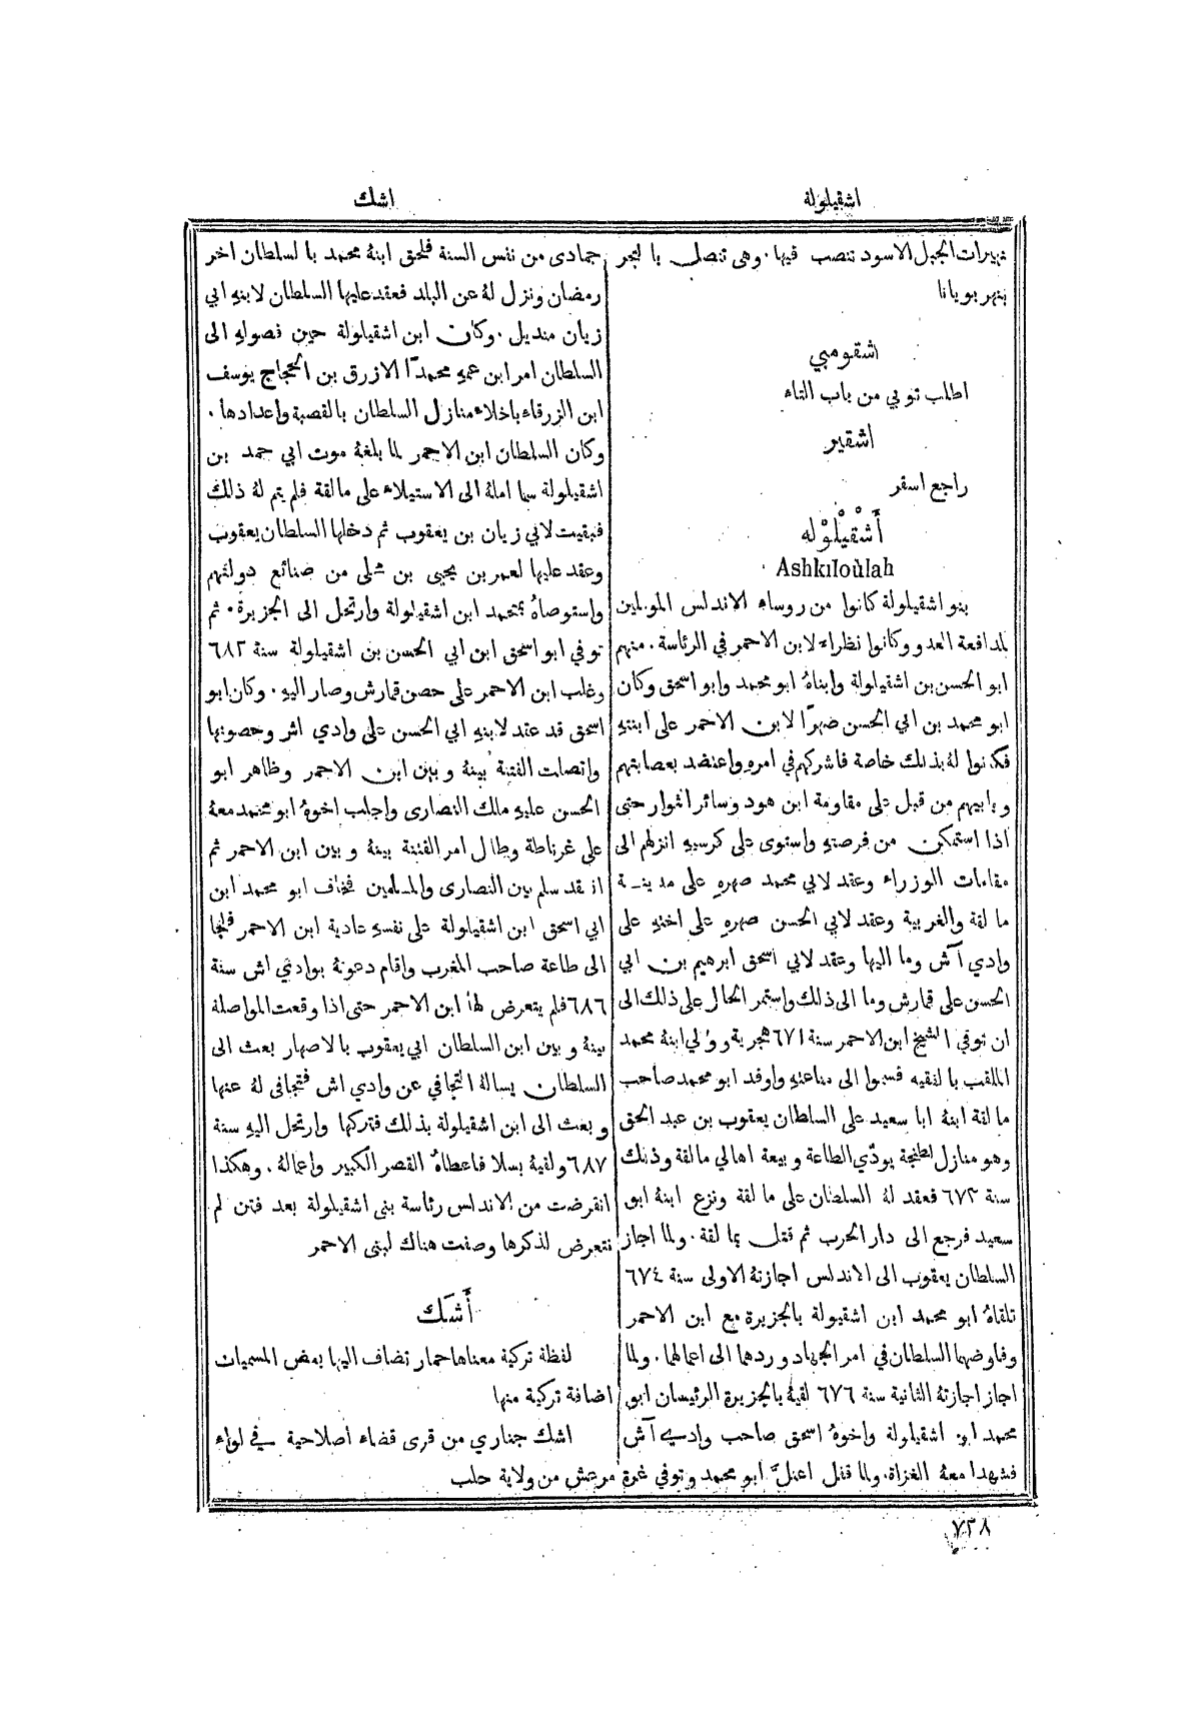 اشقيلولة
اشك
نهيرات الجبل الاسود تنصب فيها. وهى تتصل بالبحر
بنهر بويانا
اشقومبي
اطلب توبي من باب التاء
اشقير
راجع اسفر
أَشْقِيْلُوْله
Ashkiloùlah
بنو اشقيلولة كانوا من روساء الاندلس المولمين
بمدافعة العدو وكانوا نظراء لابن الاحمر في الرئاسة. منهم
ابو الحسن بن اشقيلولة وابناهُ ابو محمد وابو اسحق وكان
ابو محمد بن ابي الحسن صهرًا لابن الاحمر على ابنتهِ
فكانوا لهُ بذلك خاصة فاشركهم في امرهِ واعتضد بعصابتهم
وبابيهم من قبل على مقاومة ابن هود وسائر الثوار حتى
اذا استمكن من فرصتهِ واستوى على كرسيهِ انزلهم الى
مقامات الوزراء وعقد لابي محمد صهرهِ على مدينة
مالقة والغربية وعقد لابي الحسن صهرهِ على اختهِ على
وادي آش وما اليها وعقد لابي اسحق ابرهيم بن ابي
الحسن على قمارش وما الى ذلك واستمر الحال على ذلك الى
ان توفي الشيخ ابن الاحمر سنة ٦٧١ هجرية وولي ابنهُ محمد
الملقب بالفقيه فسموا الى مناعتهِ واوفد ابو محمد صاحب
مالقة ابنهُ ابا سعيد على السلطان يعقوب بن عبد الحق
وهو منازل لطنجة يودّي الطاعة وبيعة اهالي مالقة وذلك
سنة ٦٧٣ فعقد لهُ السلطان على مالقة ونزع ابنهُ ابو
سعيد فرجع الى دار الحرب ثم قتل بمالقة. ولما اجاز
السلطان يعقوب الى الاندلس اجازتهُ الاولى سنة ٦٧٤
تلقاهُ ابو محمد ابن اشقيولة بالجزيرة مع ابن الاحمر
وفاوضهما السلطان في امر الجهاد وردهما الى اعمالهما. ولما
اجاز اجازتهُ الثانية سنة ٦٧٦ لقيهُ بالجزيرة الرئيسان ابو
محمد ابن اشقيلولة واخوهُ اسحق صاحب وادي آش
فشهدا معهُ الغزاة. ولما قفل اعتلّ ابو محمد وتوفي غرة
جمادى من نفس السنة فلحق ابنهُ محمد بالسلطان اخر
رمضان ونزل لهُ عن البلد فعقد عليها السلطان لابنهِ ابي
زيان منديل. وكان ابن اشقيلولة حين فصولهِ الى
السلطان امر ابن عمهِ محمدًا الازرق بن الحجاج يوسف
ابن الزرقاء باخلاء منازل السلطان بالقصبة واعدادها.
وكان السلطان ابن الاحمر لما بلغهُ موت ابي محمد بن
اشقيلولة سما املهُ الى الاستيلاء على مالقة فلم يتم لهُ ذلك
فبقيت لابي زيان بن يعقوب ثم دخلها السلطان يعقوب
وعقد عليها لعمر بن يحيى بن محلى من صنائع دولتهم
واستوصاهُ بمحمد ابن اشقيلولة وارتحل الى الجزيرة. ثم
توفي ابو اسحق ابن ابي الحسن بن اشقيلولة سنة ٦٨٢
وغلب ابن الاحمر على حصن قمارش وصار اليهِ. وكان ابو
اسحق قد عقد لابنهِ ابي الحسن على وادي اثر وحصونها
واتصلت الفتنة بينهُ وبين ابن الاحمر وظاهر ابو
الحسن عليهِ ملك النصارى واجلب اخوهُ ابو محمد معهُ
على غرناطة وطال امر الفتنة بينهُ وبين ابن الاحمر ثم
انعقد سلم بين النصارى والمسلمين فخاف ابو محمد ابن
ابي اسحق ابن اشقيلولة على نفسهِ عادية ابن الاحمر فلجا
الى طاعة صاحب المغرب واقام دعوتهُ بوادي اش سنة
٦٨٦ فلم يتعرض لها ابن الاحمر حتى اذا وقعت المواصلة
بينهُ وبين ابن السلطان ابي يعقوب بالاصهار بعث الى
السلطان يسالهُ التجافي عن وادي اش فتجافى لهُ عنها
وبعث الى ابن اشقيلولة بذلك فتركها وارتحل اليهِ سنة
٦٨٧ ولقيهُ بسلا فاعطاهُ القصر الكبير واعمالهُ. وهكذا
انقرضت من الاندلس رئاسة بني اشقيلولة بعد فتن لم
نتعرض لذكرها وصفت هناك لبنى الاحمر
أَشَك
لفظة تركية معناها حمار تضاف اليها بعض المسميات
اضافة تركية منها
اشك جناري من قرى قضاء اصلاحية في لواء
مرعش من ولاية حلب
٧٢٨